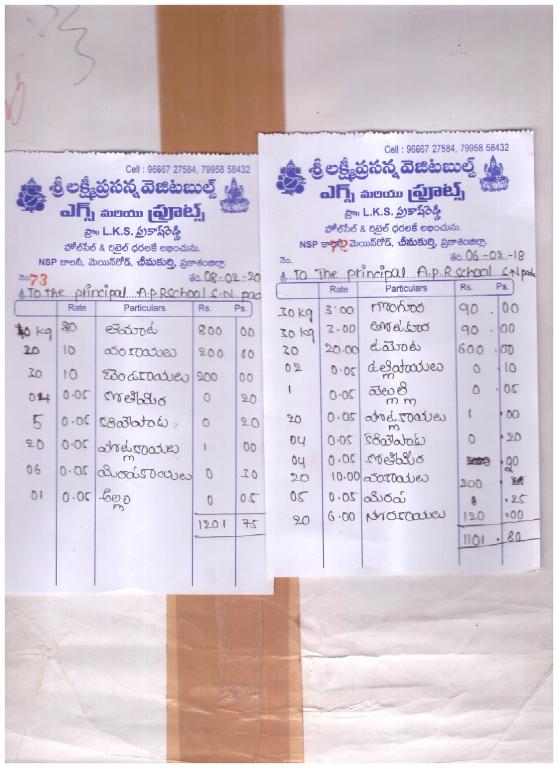 Cell : 96667 27584, 79958 58432
శ్రీ లక్ష్మీ ప్రసన్న వెజిటబుల్స్
ఎగ్స్ మరియు ఫ్రూట్స్
ప్రొ॥ L.K.S. ప్రకాష్‌రెడ్డి
హోల్‌సేల్ & రిటైల్ ధరలకే లభించును.
NSP కాలనీ, మెయిన్‌రోడ్, చీమకుర్తి, ప్రకాశంజిల్లా.
నెం. 73 తేది. 08-02-20
శ్రీ. To the principal A.P.R school S.N pad
Rate Particulars Rs. Ps.
kg టమోట 800 00
20 10 వంకాయలు 200 00
20 10 బెండకాయలు 200 00
04 0.05 కొతిమీర 0 20
5 0.05 కరివేపాకు 0 20
20 0.05 1 00
06 0.05 మిరపకాయలు 0 30
01 0.05 అల్లం 0 05
1201 75
Cell : 96667 27584, 79958 58432
శ్రీ లక్ష్మీ ప్రసన్న వెజిటబుల్స్
ఎగ్స్ మరియు ఫ్రూట్స్
ప్రొ॥ L.K.S. ప్రకాష్‌రెడ్డి
హోల్‌సేల్ & రిటైల్ ధరలకే లభించును.
NSP కాలనీ, మెయిన్‌రోడ్, చీమకుర్తి, ప్రకాశంజిల్లా.
నెం. 72 తేది. 06-02-18
శ్రీ. To the principal A.P.R school S.N pad
Rate Particulars Rs. Ps.
30 kg 3.00 గోంగూర 90 .00
30 kg 3.00 తోటకూర 90 .00
30 20.00 టమోట 600 .00
02 0.05 ఉల్లిపాయలు 0 .10
1 0.05 వెల్లుల్లి 0 .05
20 0.05 1 .00
04 0.05 కరివేపాకు 0 .20
04 0.05 కొతిమీర
20 10.00 వంకాయలు 200
05 0.05 మిరప 0 .25
20 6.00 120 .00
1101 . 80